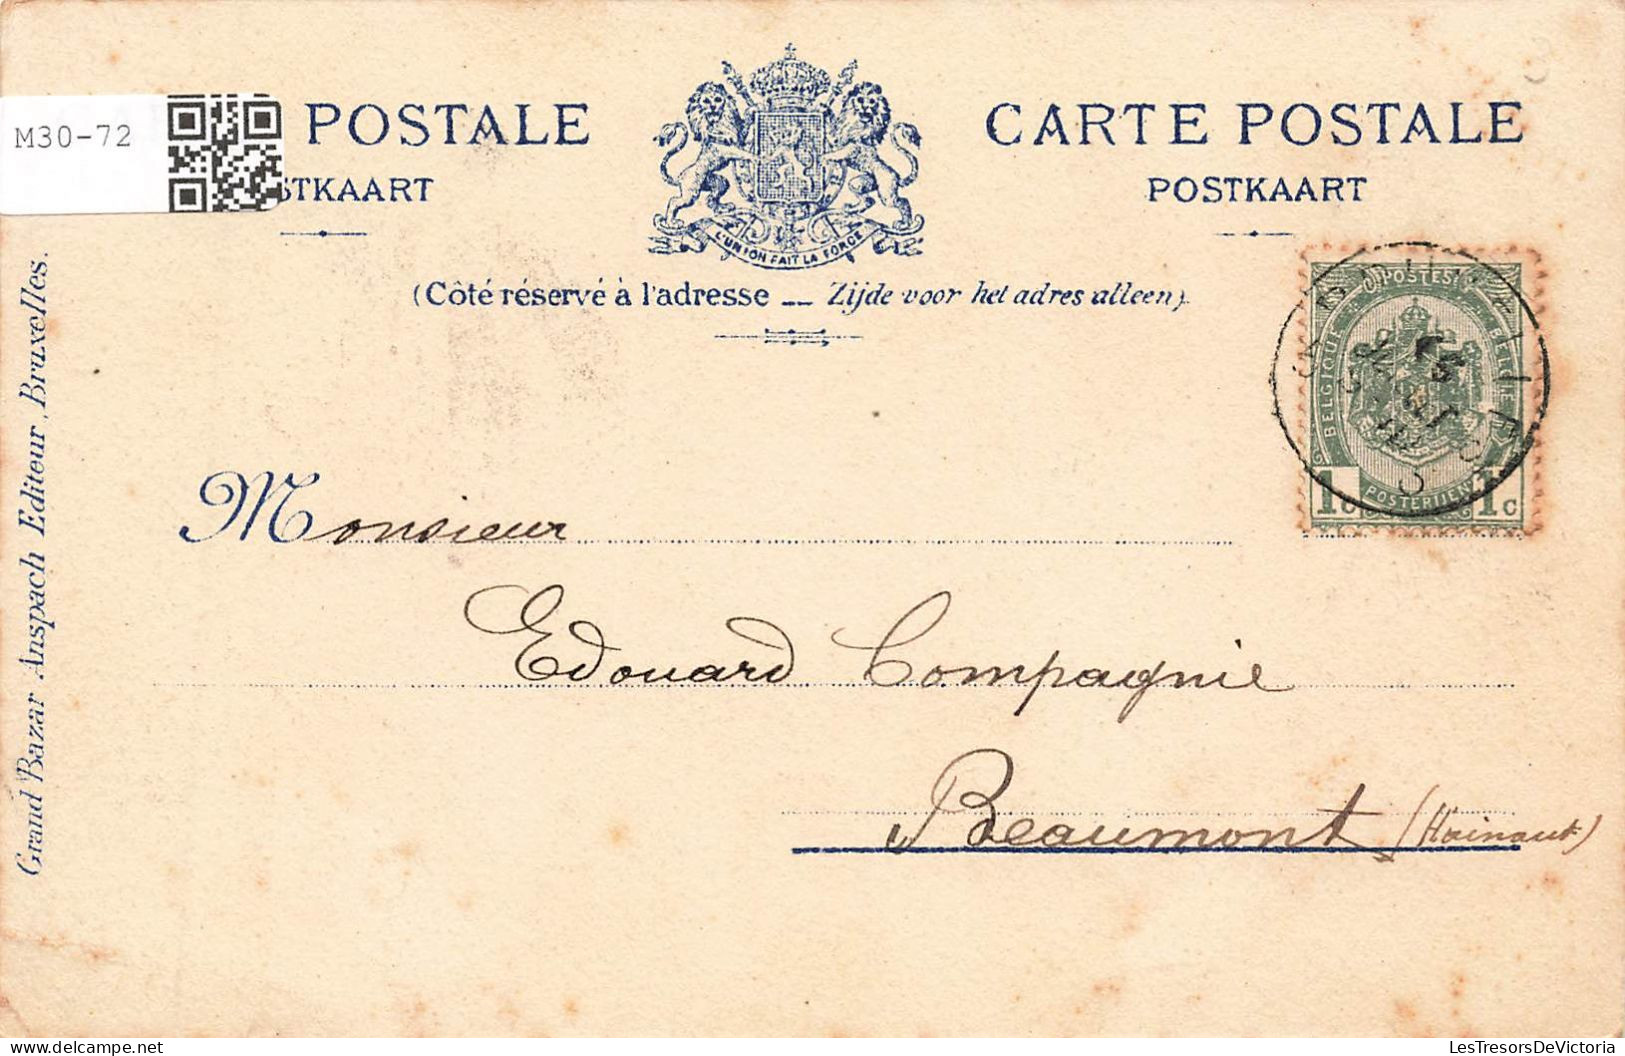 M30-72
POSTALE
STKAART
CARTE POSTALE
POSTKAART
L'UNION FAIT LA FORCE
(Côté réservé à l'adresse — Zijde voor het adres alleen)
POSTES
BELGIQUE
BELGIË
1c POSTERIJEN 1c
Monsieur
Edouard Compagnie
Beaumont (Hainaut)
Grand Bazar Anspach Editeur, Bruxelles.
delcampe.net
LesTresorsDeVictoria